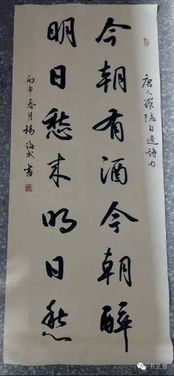 唐人罗隐自遣诗句
今朝有酒今朝醉
明日愁来明日愁
丙申春月杨海成书
书正昌